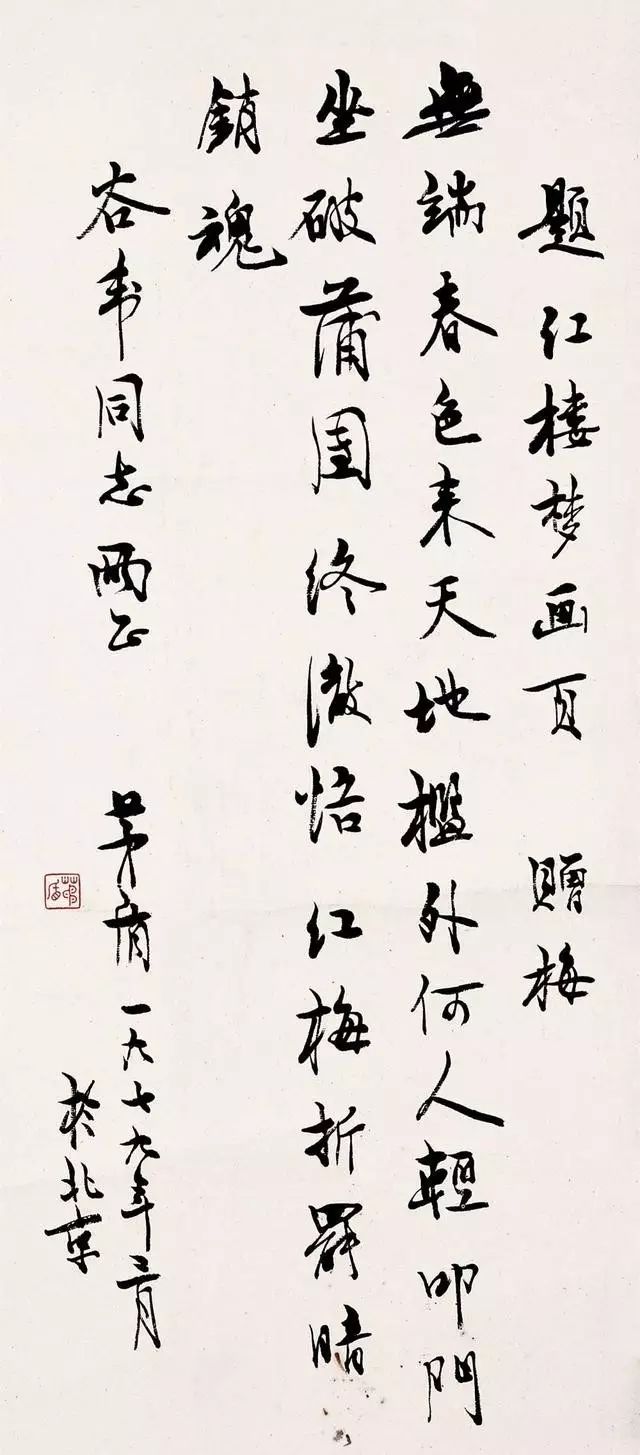 题红楼梦画页 赠梅
無端春色来天地槛外何人輕叩門
坐破蒲团终澈悟红梅折罢暗
銷魂
谷韦同志两正
茅盾一九七九年二月
於北京
茅盾